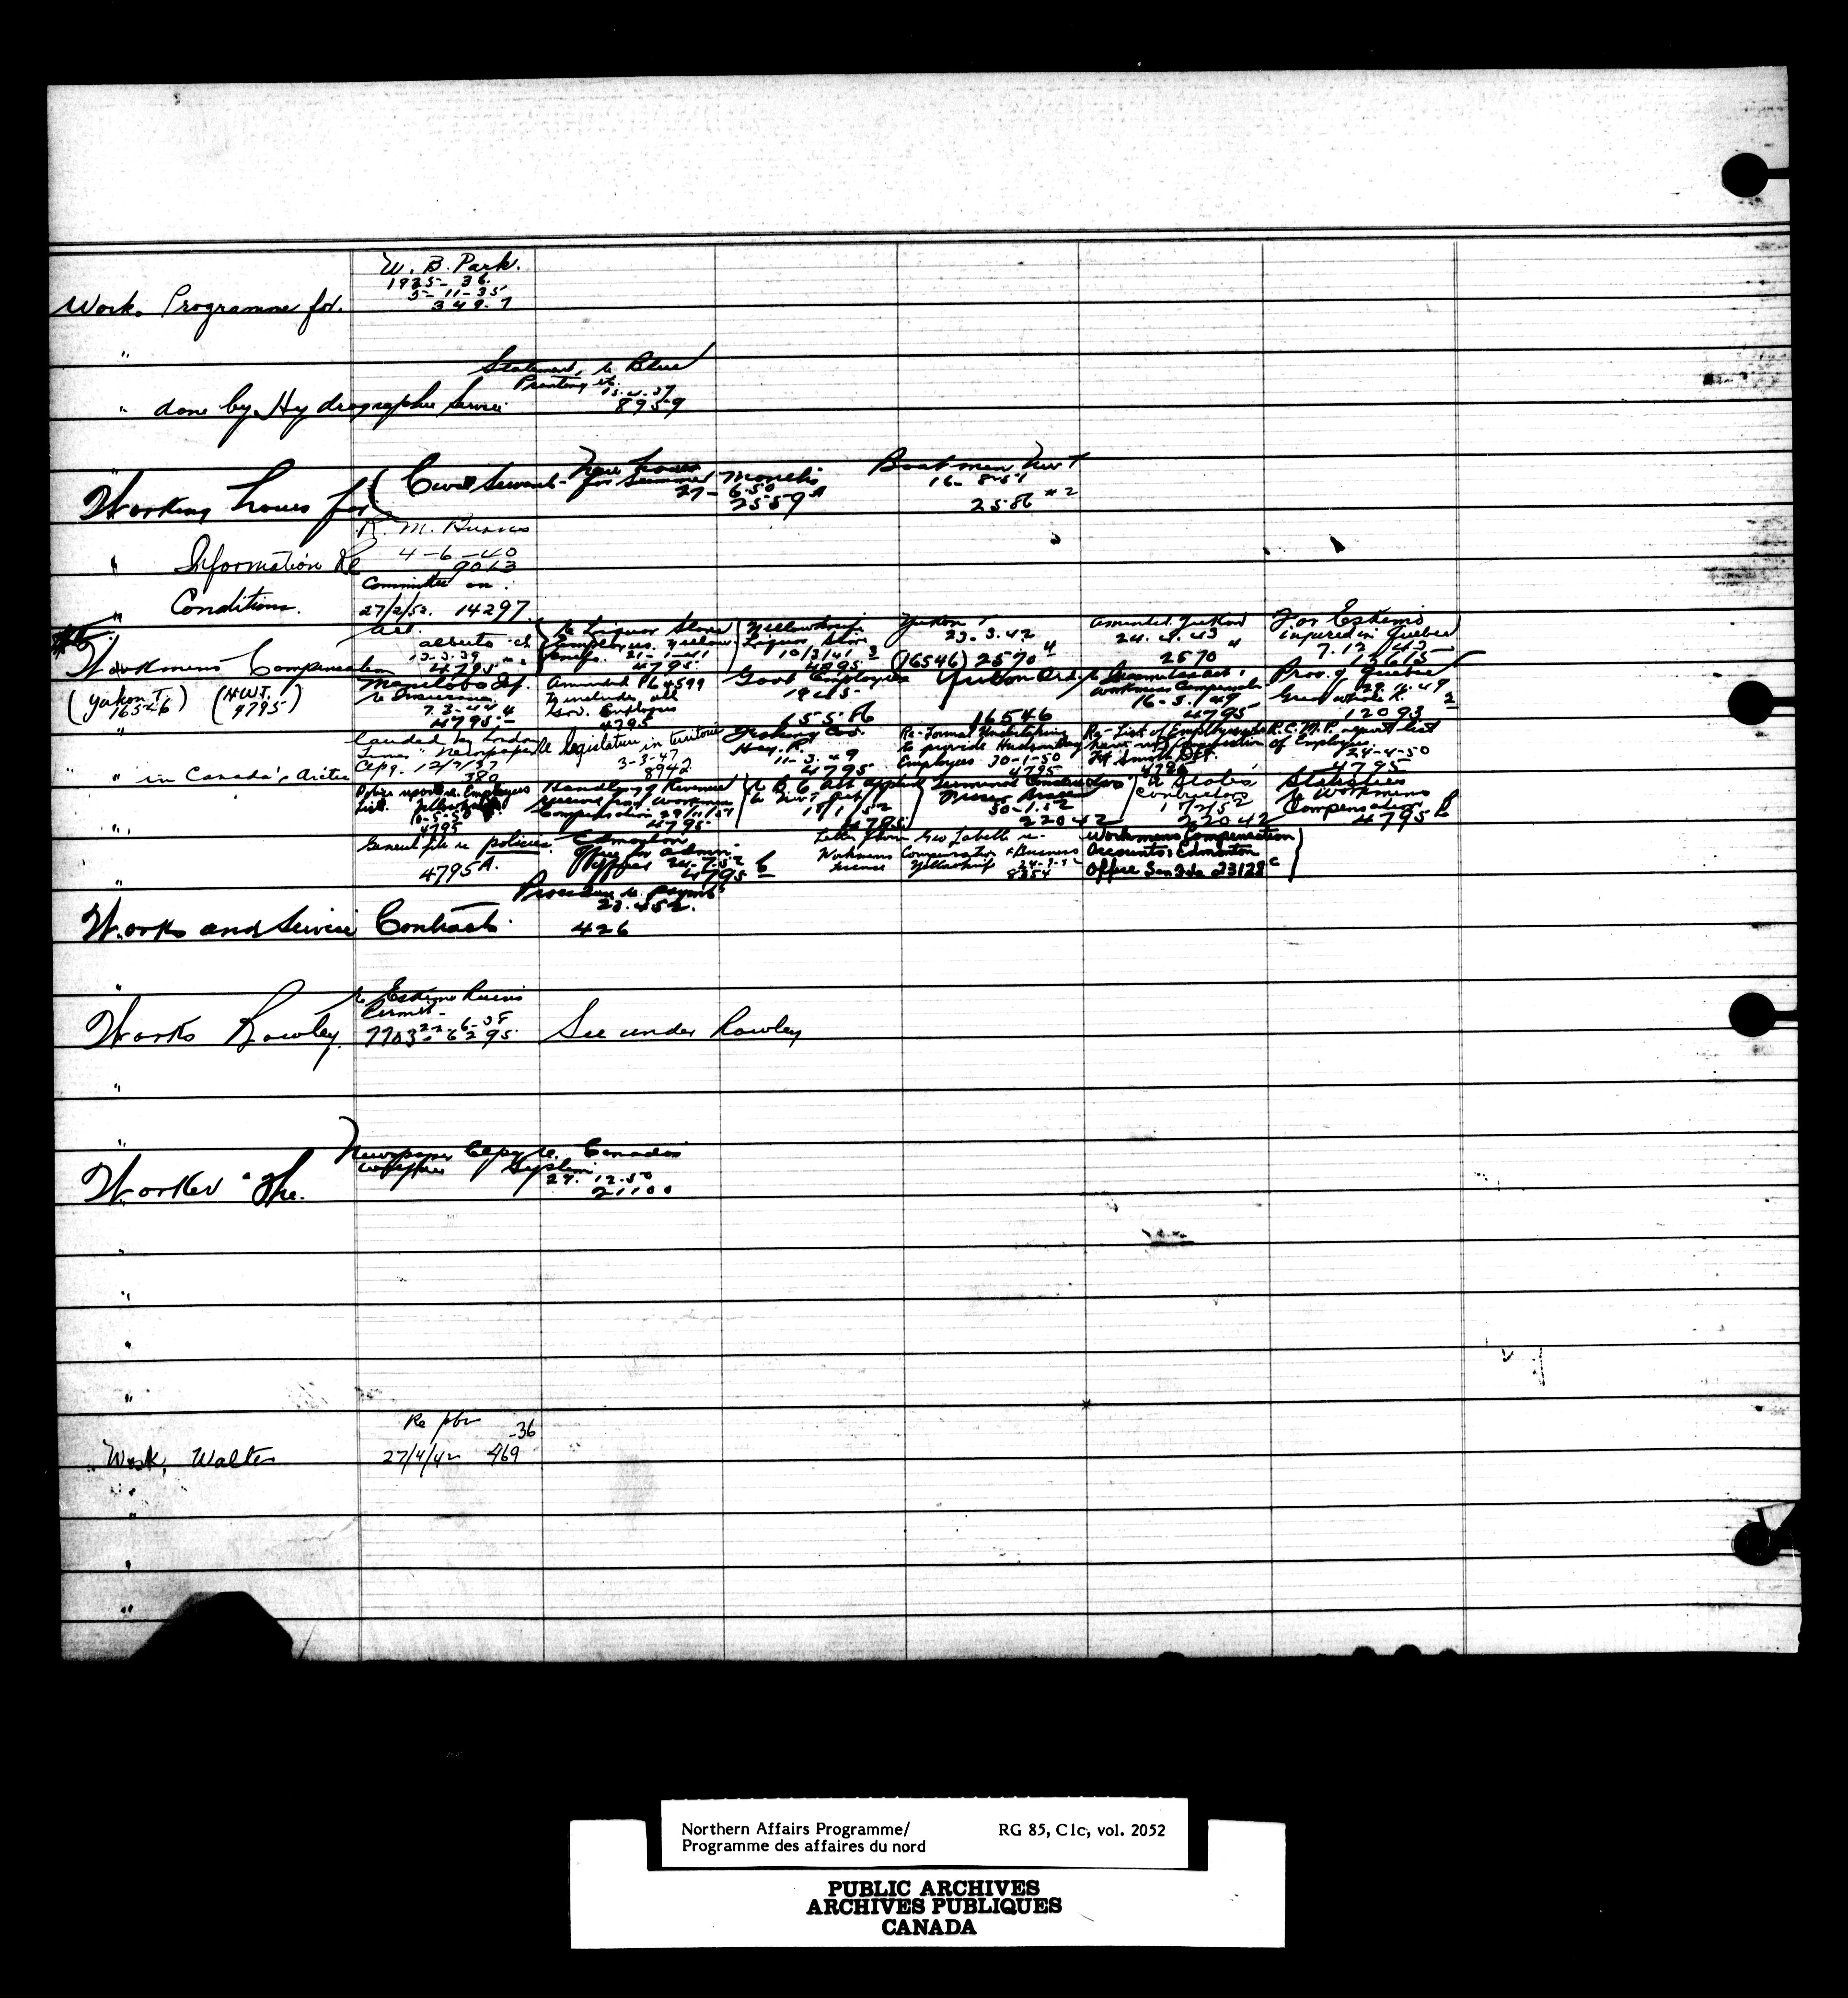 W. B. Park.
1935-36.
5-11-35
349.7
Work. Programme for.
"
Statement, re Blue
Printing etc.
13.4.37
" done by Hydrographic Service 8959
"
New hours
Working hours for ( Civil Servants - for Summer Months
27-6-50
2559A
Boatmen NWT
16-8-51
2586 #2
R. M. Burns
4-6-40
" Information Re 9013
Committee on.
" Conditions. 27/2/52. 14297.
Act
Alberta
13-3-39
Workmens Compensation 4795
Re Liquor Store
Employees. Yellow-
knife. 21-1-41
4795
Yellowknife
Liquor Store
10/3/41
4795 3
Yukon T
23.3.42
(16546) 2570 "
Amended. Yukon
24.4.43
2570 "
For Eskimo
injured in Quebec
7.12/43
13615
(Yukon T. 16546) (N.W.T. 4795)
Manitoba
re Insurance
7.3-44
4795
Amended PC 4599
to include all
Gov. Employees
4795
Govt Employees
1945
15586
Yukon Ord.
16546
Workmens Compensation
16-3-49
4795
Prov. of Quebec
Great Whale R.
29.4.49
12093 2
"
Lauded by London
Times " Newspaper
Clpg. 12/7/37
" in Canada's Arctic 380
Re legislation in territories
3-3-47
8942
Fishing Cos.
Hay. R.
11-3-49
4795
Re-Formal Undertaking
to provide Hudson Bay
Employees 30-1-50
4795
Re-List of Employers who
have not protection
Ft Smith Dist.
4795
R.C.M.P. report list
of Employees.
24-4-50
4795
Police report re Employees
List. Yellowknife
10-5-50
" 4795
Handling of Revenue
received from Workmens
Compensation 29/11/51
4795
Re B.C. Act applied
to NWT Act
15/1/52
4795
30-1-52
22042
Contractors
15/2/52
22042
Statistics
re Workmens
Compensation
4795
General file re policies.
" 4795A.
Edmonton
Office for admin.
Offices 24-7-52
4795 b
Letter from Geo. Labelle re-
Workmens Compensation & Business
License Yellowknife 24-9-52
8354
Workmens Compensation
Accounts: Edmonton
Office See File 23128 c
Procedure re payments
23.4.52.
Works and Service Contracts 426
"
re Eskimo Ruins
Permit-
22-6-38
Works Rowley. 7703- 6295 See under Rowley
"
"
Newspaper Clpg re. Canada's
Welfare System
27.12.50
Worker "The. 21100
"
"
"
"
Re
-36
Wosk, Walter 27/4/42 469
"
"
"
"
Northern Affairs Programme/ RG 85, C1c, vol. 2052
Programme des affaires du nord
PUBLIC ARCHIVES
ARCHIVES PUBLIQUES
CANADA